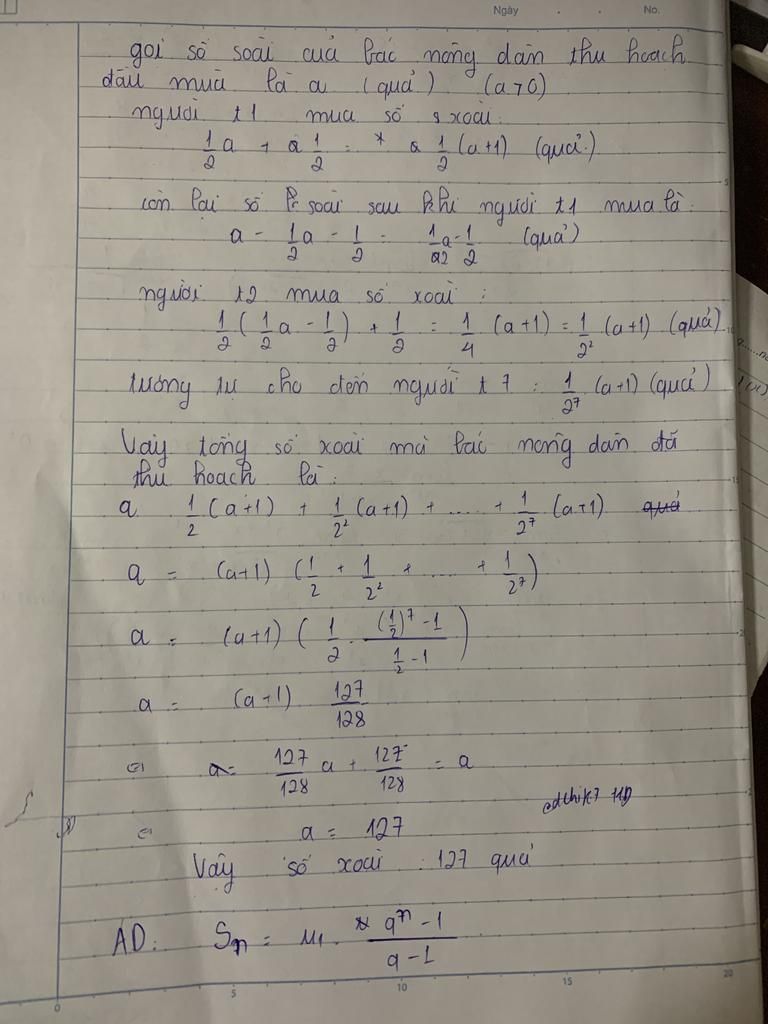 Ngày . . No.
gọi số soài của bác nông dân thu hoạch
đầu mùa là a (quả) (a>0)
người t1 mua số xoài:
1/2 a + 1/2 = 1/2 (a+1) (quả.)
còn lại số soài sau khi người t1 mua là:
a - 1/2 a - 1/2 = 1/2 a - 1/2 (quả)
người t2 mua số xoài :
1/2 (1/2 a - 1/2) + 1/2 = 1/4 (a+1) = 1/2² (a+1) (quả)
tương tự cho đến người t7 : 1/2⁷ (a+1) (quả)
Vậy tổng số xoài mà bác nông dân đã
thu hoạch là:
a 1/2 (a+1) + 1/2² (a+1) + ..... + 1/2⁷ (a+1) quả
a = (a+1) (1/2 + 1/2² + ..... + 1/2⁷)
a = (a+1) (1/2 . ((1/2)⁷ - 1)/(1/2 - 1))
a = (a+1) 127/128
⇔ a = 127/128 a + 127/128 = a
⇔ a = 127
Vậy số xoài : 127 quả
AD: Sn = u1 . (qⁿ - 1)/(q - 1)
0 5 10 15 20